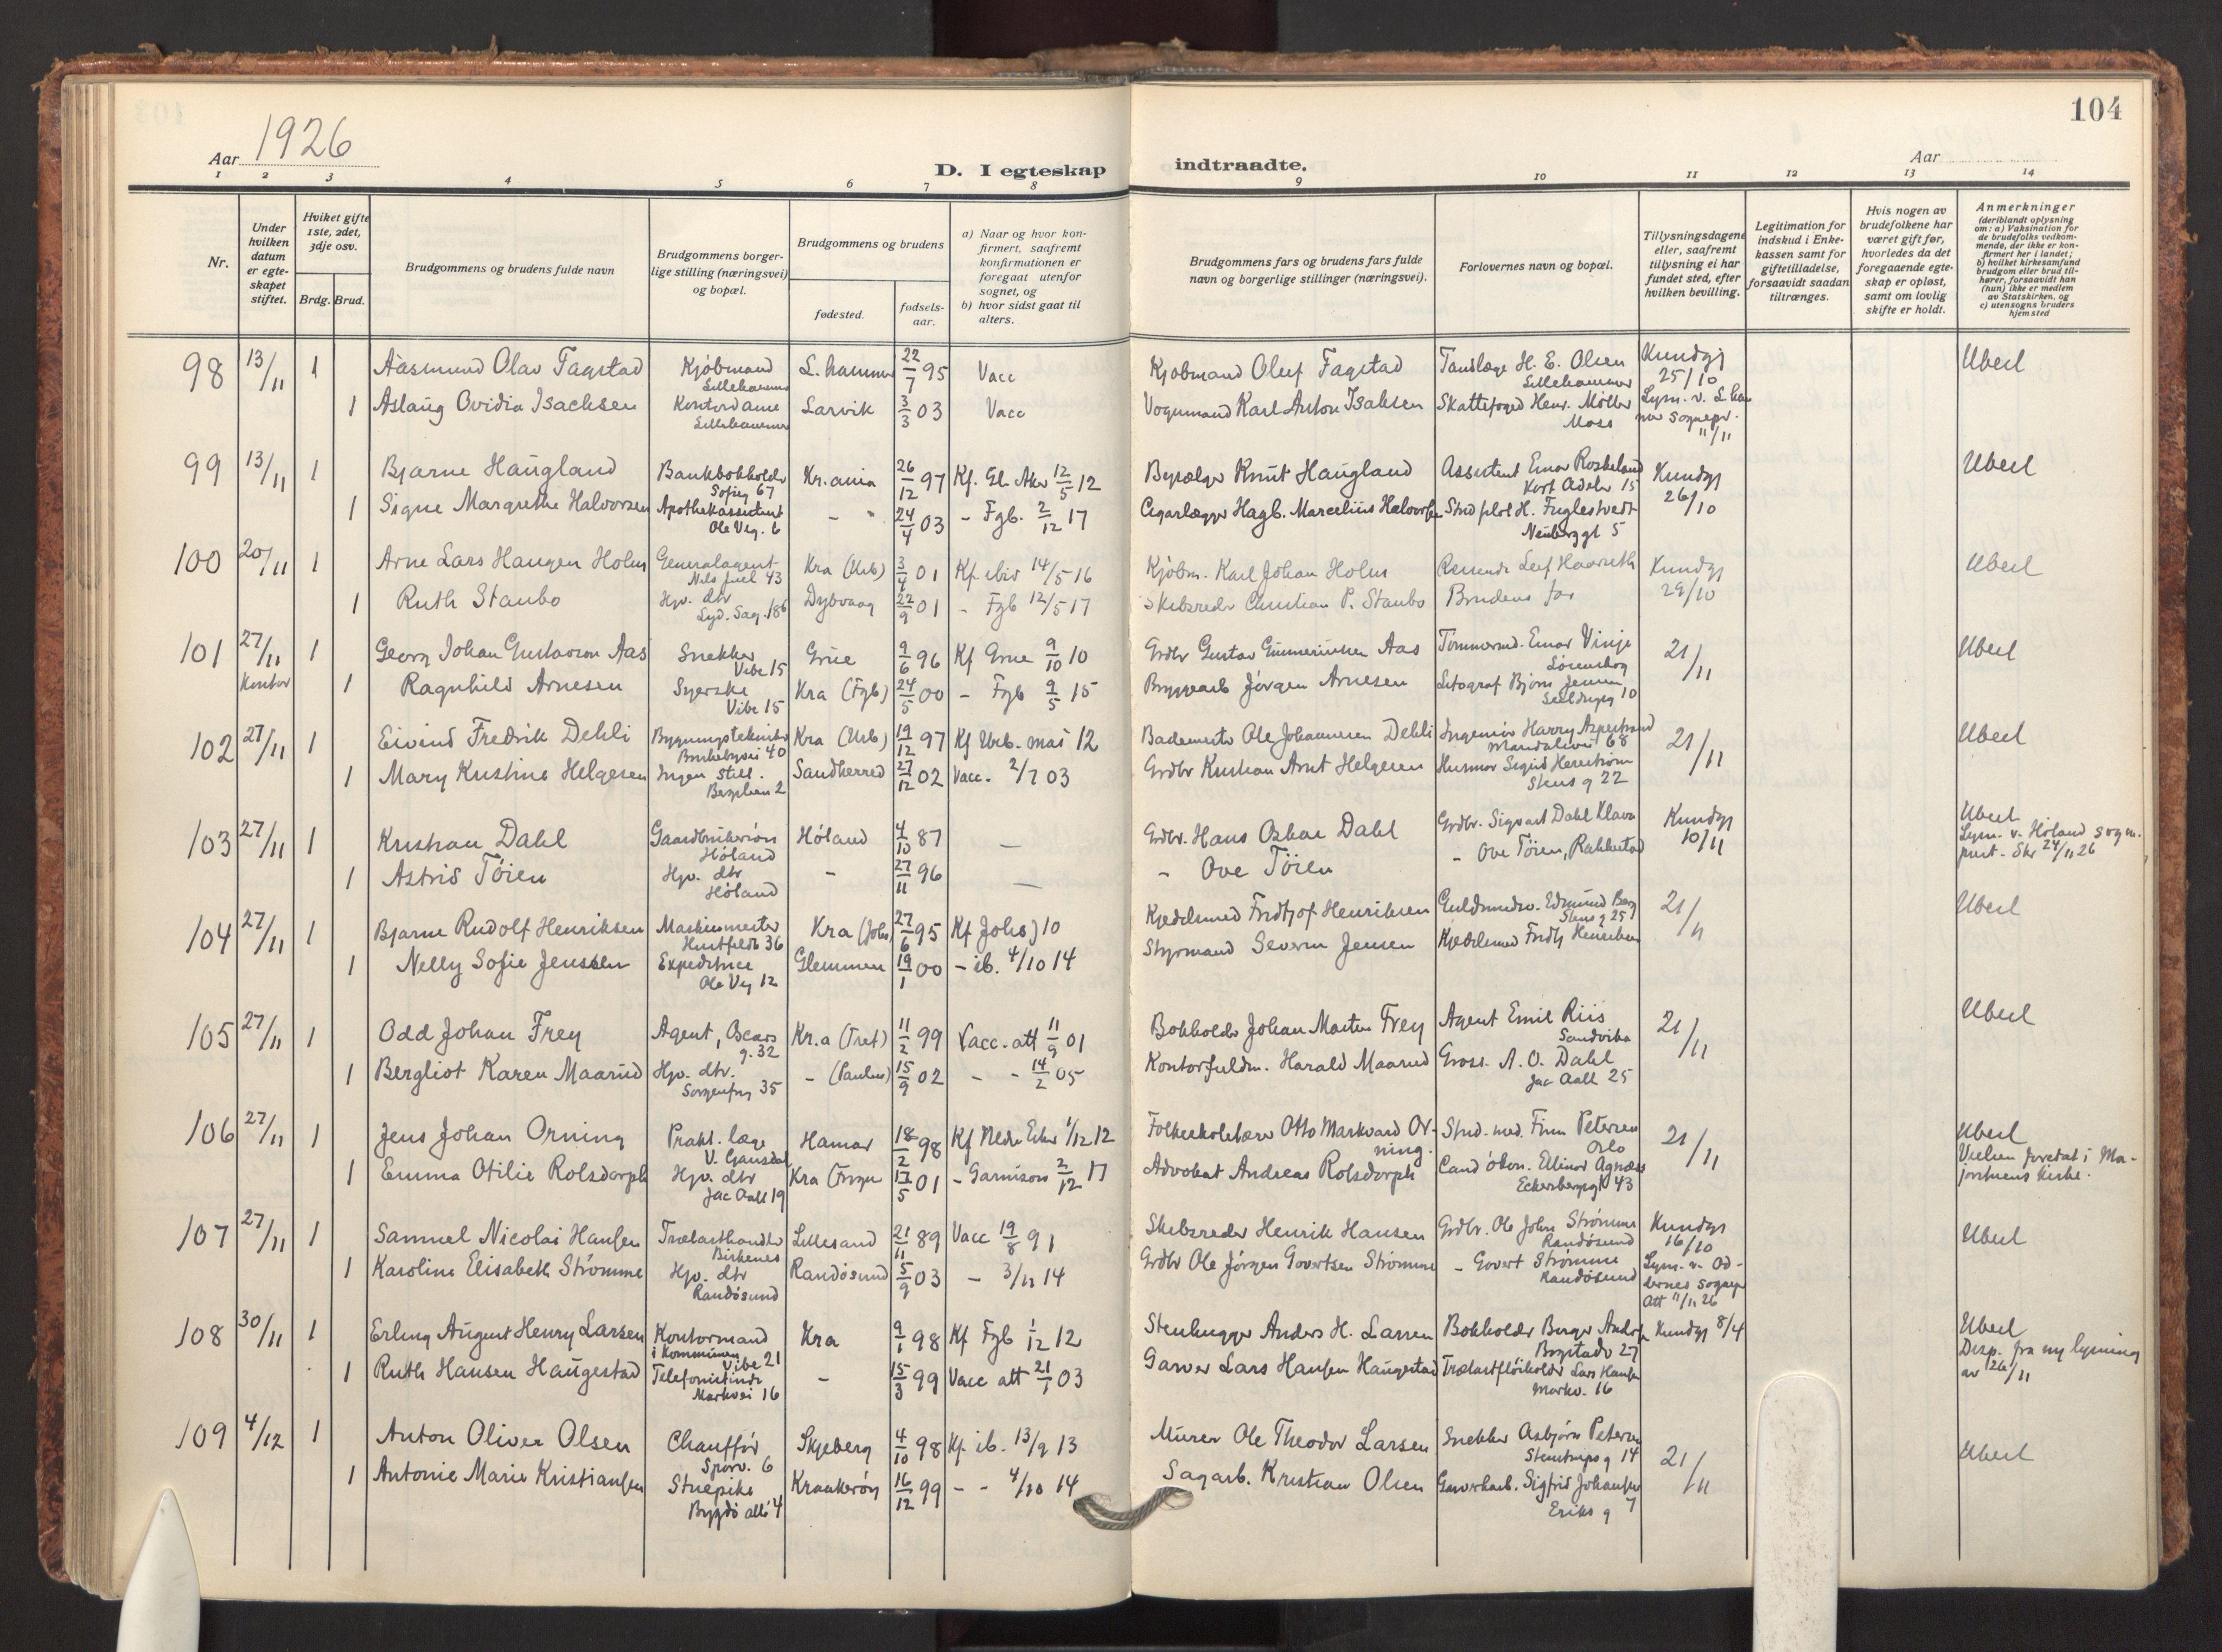 104
1926
Aar
Aar
D. I egteskap
indtraadte.
1 2 3 4 5 6 7 8
9 10 11 12 13 14
Nr.
Under hvilken datum er egte-skapet stiftet.
Hviket gifte 1ste, 2det, 3dje osv.
Brdg. Brud.
Brudgommens og brudens fulde navn
Brudgommens borger-lige stilling (næringsvei) og bopæl.
Brudgommens og brudens
fødested.
fødsels-aar.
a) Naar og hvor kon-firmert, saafremt konfirmationen er foregaat utenfor sognet, og
b) hvor sidst gaat til alters.
Brudgommens fars og brudens fars fulde navn og borgerlige stillinger (næringsvei).
Forlovernes navn og bopæl.
Tillysningsdagene eller, saafremt tillysning ei har fundet sted, efter hvilken bevilling.
Legitimation for indskud i Enke-kassen samt for giftetilladelse, forsaavidt saadan tiltrænges.
Hvis nogen av brudefolkene har været gift før, hvorledes da det foregaaende egte-skap er opløst, samt om lovlig skifte er holdt.
Anmerkninger
(deriblandt oplysning om: a) Vaksination for de brudefolks vedkom-mende, der ikke er kon-firmert her i landet; b) hvilket kirkesamfund brudgom eller brud til-hører, forsaavidt han (hun) ikke er medlem av Statskirken, og c) utensogns bruders hjemsted
98 13/11 1 Aasmund Olav Fagstad Kjøbmand L.hammer 22/7 95 Vacc Kjøbmand Oluf Fagstad Tandlæge H. E. Olsen Kundgj Ubesl
Lillehammer Lillehammer 25/10
1 Aslaug Ovidia Isachsen Kontordame Larvik 3/3 03 Vacc Vognmand Karl Anton Isaksen Skattefoged Henr. Møller Lysn. v. L.ham
Lillehammer Moss mer sognepr. 11/11
99 13/11 1 Bjarne Haugland Bankbokholder Kr.ania 26/12 97 Kf. Gl. Aker 12/5 12 Knut Haugland Assistent Einar Roskeland Kundgj Ubesl
Sofieg 67 Kort Adeler 15 26/10
1 Signe Margrethe Halvorsen Apothekassistent - " 24/4 03 - Fgb. 2/12 17 Cigarlægger Hagb. Marcelius Halvorsen Stud. H. Fuglestvedt
Ole Vig. 6 Neuberggt 5
100 20/11 1 Arne Lars Haugen Holm Generalagent Kra (Urb) 3/4 01 Kf. ibid 14/5 16 Kjøbm. Karl Johan Holm Leif Haareth Kundgj Ubesl
Nils Juel 43 29/10
1 Ruth Staubo Hjv. dtr Dybvaag 22/9 01 - Fgb 12/5 17 Skibsreder Christian P. Staubo Brudens far
Lyd. Sag. 18b
101 27/11 1 Georg Johan Gustavson Aas Snekker Grue 9/6 96 Kf Grue 9/10 10 Grdbr Gustav Aas Tømmermd. Einar Vinje 21/11 Ubesl
Kontor Vibe 15
1 Ragnhild Arnesen Syerske Kra (Fgb) 24/5 00 - Fgb 9/5 15 Bryggearb Jørgen Arnesen Litograf Bjørn Jensen
Vibe 15
102 27/11 1 Eivind Fredrik Dehli Bygningstekniker Kra (Urb) 19/12 97 Kf Urb. mai 12 Bademester Ole Johannesen Dehli Ingeniør Harry 21/11 Ubesl
40 68
1 Mary Kristine Helgesen Ingen still. Sandherred 27/12 02 Vacc. 2/7 03 Grdbr Kristian Arnt Helgesen Sigrid
Berglien 2 Stens g 22
103 27/11 1 Kristian Dahl Gaardbrukersøn Høland 4/10 87 — Grdbr. Hans Oskar Dahl Grdbr. Sigvart Dahl Kundgj Ubesl
Høland 10/11 Lysn. v. Høland sogn.
1 Astrid Tøien Hjv. dtr - 27/11 96 — - Ove Tøien - Ove Tøien, Rakkestad prest - Skr 24/11 26
Høland
104 27/11 1 Bjarne Rudolf Henriksen Maskinmester Kra (Johs) 27/6 95 Kf Johs) 10 Kjedelsmed Fridtjof Henriksen Guldsmedsv. Edmund Berg 21/11 Ubesl
Hertfeldt 36 Stens g 25
1 Nelly Sofie Jenssen Expeditrice Glemmen 19/1 00 - ib. 4/10 14 Styrmand Severin Jensen Kjedelsmed Fridtj Henriksen
Ole Vig 12
105 27/11 1 Odd Johan Frey Agent, Oscars Kr.a (Tref) 11/2 99 Vacc. att 11/9 01 Bokholder Johan Martin Frey Agent Emil Riis 21/11 Ubesl
g. 32 Sandvika
1 Bergliot Karen Maarud Hjv. dtr. - (Paulus) 15/9 02 - - 14/2 05 Kontorfuldm. Harald Maarud Gross. A. O. Dahl
Sorgenfrig 35 Jac Aall 25
106 27/11 1 Jens Johan Orning Prakt. læge Hamar 18/2 98 Kf Nedre Eker 1/12 12 Folkeskolelærer Otto Markvard Or- Stud. med. Finn Petersen 21/11 Ubesl
V. Gausdal ning. Oslo Vielsen foretat i Ma-
1 Emma Otilie Rolsdorph Hjv. dtr Kra 17/5 01 - Garnison 2/12 17 Advokat Andreas Rolsdorph Cand økon. Ellinor Agnæs jorstuens kirke.
Jac Aall 19 Eckersbergsgt 43
107 27/11 1 Samuel Nicolai Hansen Trælasthandler Lillesand 21/11 89 Vacc 19/8 91 Skibsreder Henrik Hansen Grdbr. Ole John Strømme Kundgj Ubesl
Birkenes Randøsund 16/10
1 Karoline Elisabeth Strømme Hjv. dtr Randøsund 5/9 03 - 3/11 14 Grdbr Ole Jørgen Govertsen Strømme - Govert Strømme Lysn. v. Od-
Randøsund Randøsund dernes sognepr
Att 11/11 26
108 30/11 1 Erling August Henry Larsen Kontormand Kra 9/1 98 Kf Fgb 1/12 12 Stenhugger Anders H. Larsen Bokholder Birger Kundgj 8/4 Ubesl
i kommunen Vibe 21 Bogstadv 27 Disp. fra ny lysning
1 Ruth Hansen Haugestad Telefonistinde - 15/3 99 Vacc att 21/1 03 Garver Lars Hansen Haugestad Lars Hansen av 26/11
Markvei 16 Markv. 16
109 4/12 1 Anton Oliver Olsen Chauffør Skjeberg 4/10 98 Kf. ib. 13/9 13 Murer Ole Theodor Larsen Snekker Asbjørn Petersen 21/11 Ubesl
Sporv. 6 Stenstrups g 14
1 Antonie Marie Kristiansen Stuepike Kraakerøy 16/12 99 - - 4/10 14 Sagarb. Kristian Olsen Sigfrid Johansen
Bygdø allé 4 Eriks g 7